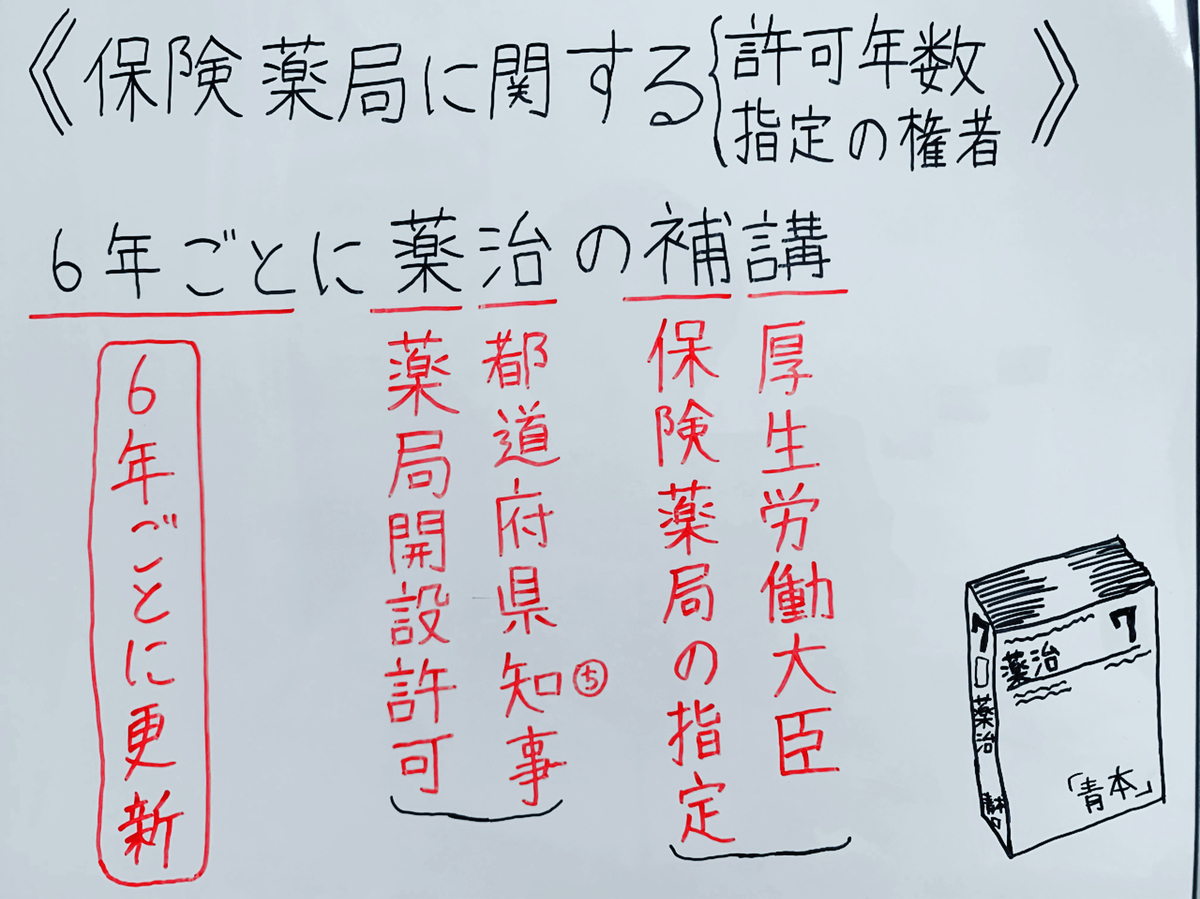 《保険薬局に関する{許可年数
指定の権者》
6年ごとに薬治の補講
6年ごとに更新
薬局開設許可
都道府県知事
ち
保険薬局の指定
厚生労働大臣
7
薬治
青本
7
薬治
「青本」